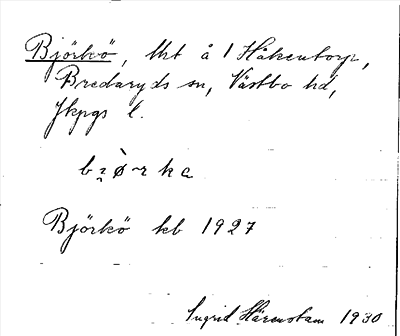 Björkö, lht å 1 Håkentorp,
Bredaryds sn, Västbo hd,
Jkpgs l.
bɪ̯ø̀rka
Björkö kb 1927
Ingrid Härenstam 1930